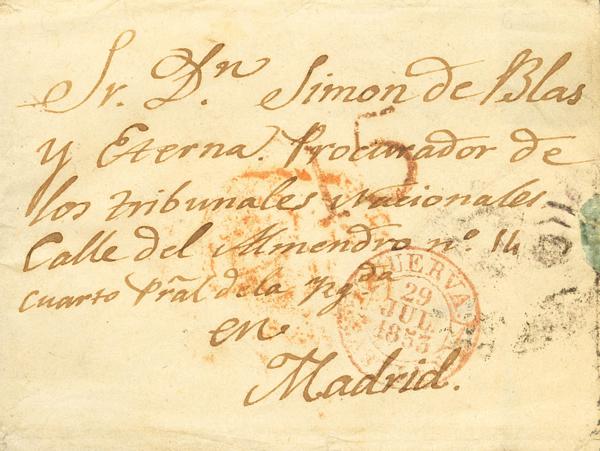 Sr. Dn. Simon de Blas
y Eterna. Procurador de
los tribunales Nacionales.
Calle del Almendro nº. 14
cuarto Pral de la Yzqda
en
Madrid.
15
CUERVA
29
JUL
1853